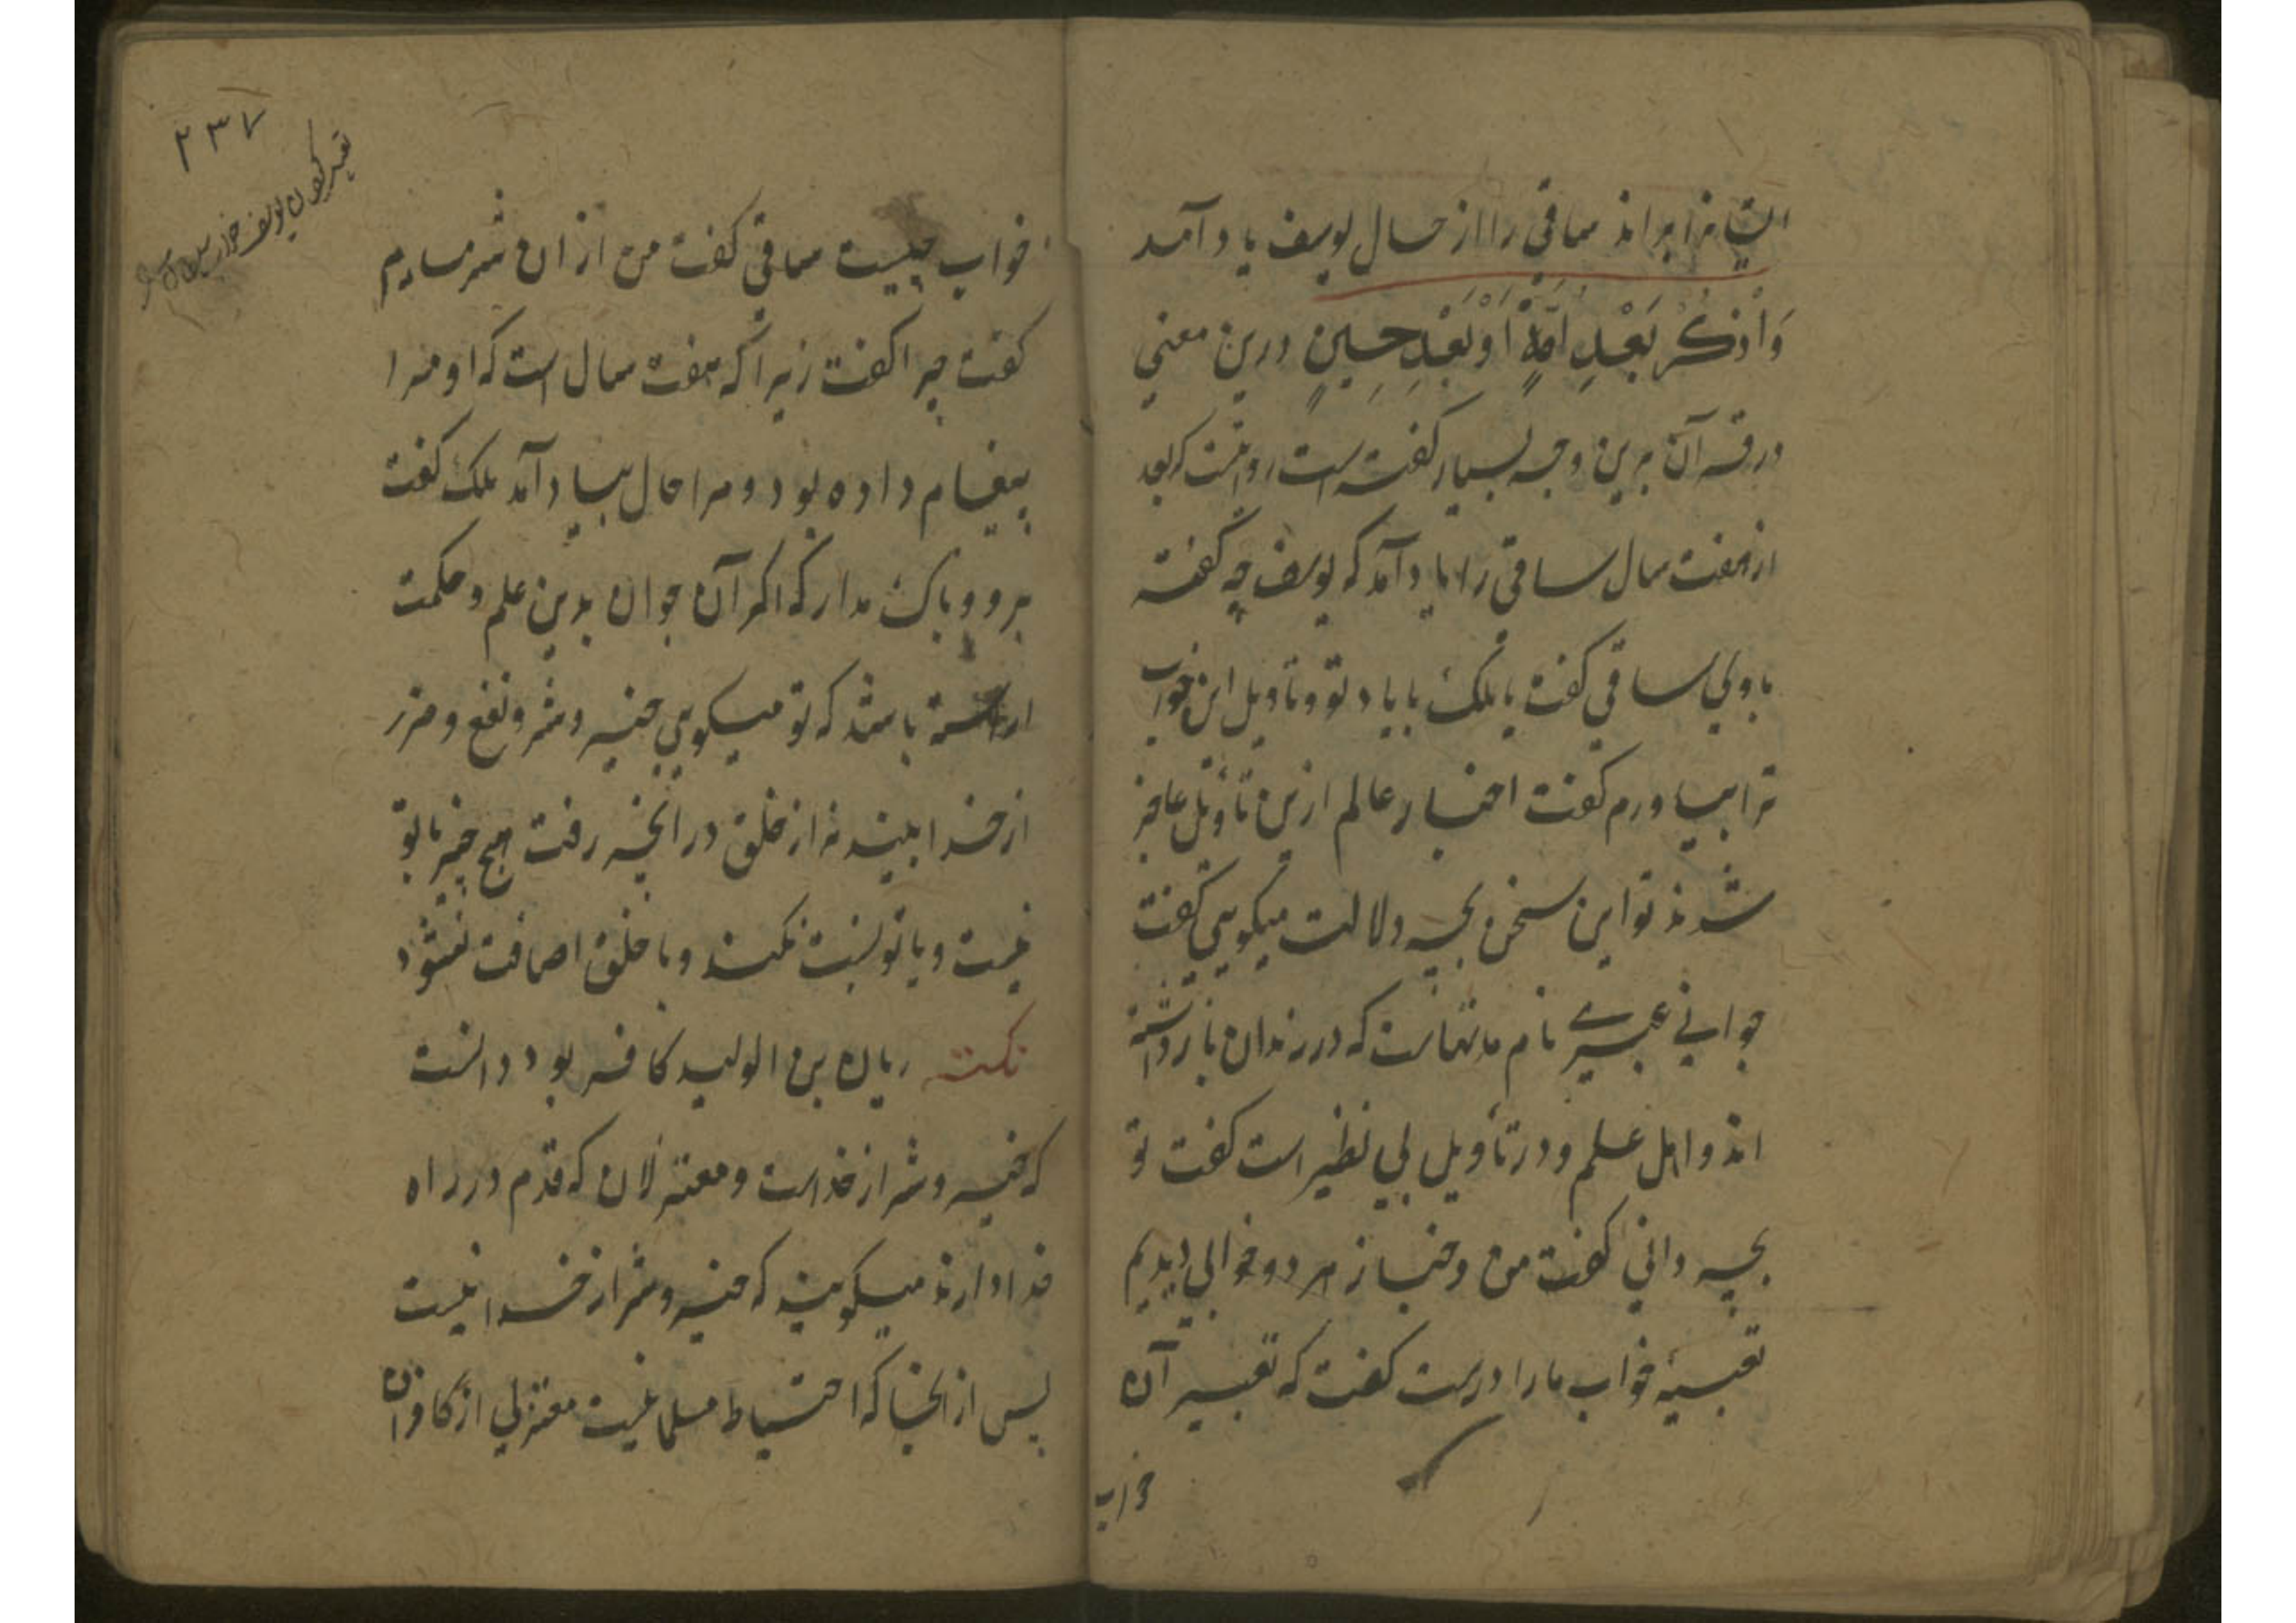 ایشانرا براند ساقی را از حال یوسف یاد آمد
وَاذْکُرْ بَعْدَ اُمَّةٍ اَوْ بَعْدِ حِینٍ درین معنی
در قرآن برین وجه بسیار گفته است روا نیست که بعد
از هفت سال ساقی را یاد آمد که یوسف چه گفته
با ولی ساقی گفت یا ملک با یاد تو و تاویل این خواب
ترا بیاورم گفت احبار عالم ازین تأویل عاجز
شدند تو این سخن بچه دلالت میکویی گفت
جوانی عبری نام مدتهاست که در زندان باز داشته
اند و اهل علم و در تأویل بی نظیر است گفت تو
بچه دانی گفت من و خباز هر دو خوابی دیدیم
تعبیر خواب ما را درست گفت که تعبیر آن
خواب
۲۳۷
تعبیر کردن یوسف خواب
خواب چیست ساقی گفت من از ان شرمسارم
گفت چرا گفت زیرا که هفت سال است که او مرا
پیغام داده بود و مرا حال بیاد آمد ملک گفت
برو و باک مدار که اگر آن جوان بدین علم و حکمت
اراسته باشد که تو میکویی خیر و شر و نفع و ضرر
از خدا بیند نه از خلق در انچه رفت هیچ چیز با تو
نیست و با تو نسبت نکند و با خلق اضافت نشود
نکته ریان بن الولید کافر بود دانست
که خیر و شر از خداست و معتزلان که قدم در راه
خدا دارند میکویند که خیر و شر از خدا نیست
پس از انجا که احتیاط مسلمانیست معتزلی از کافران